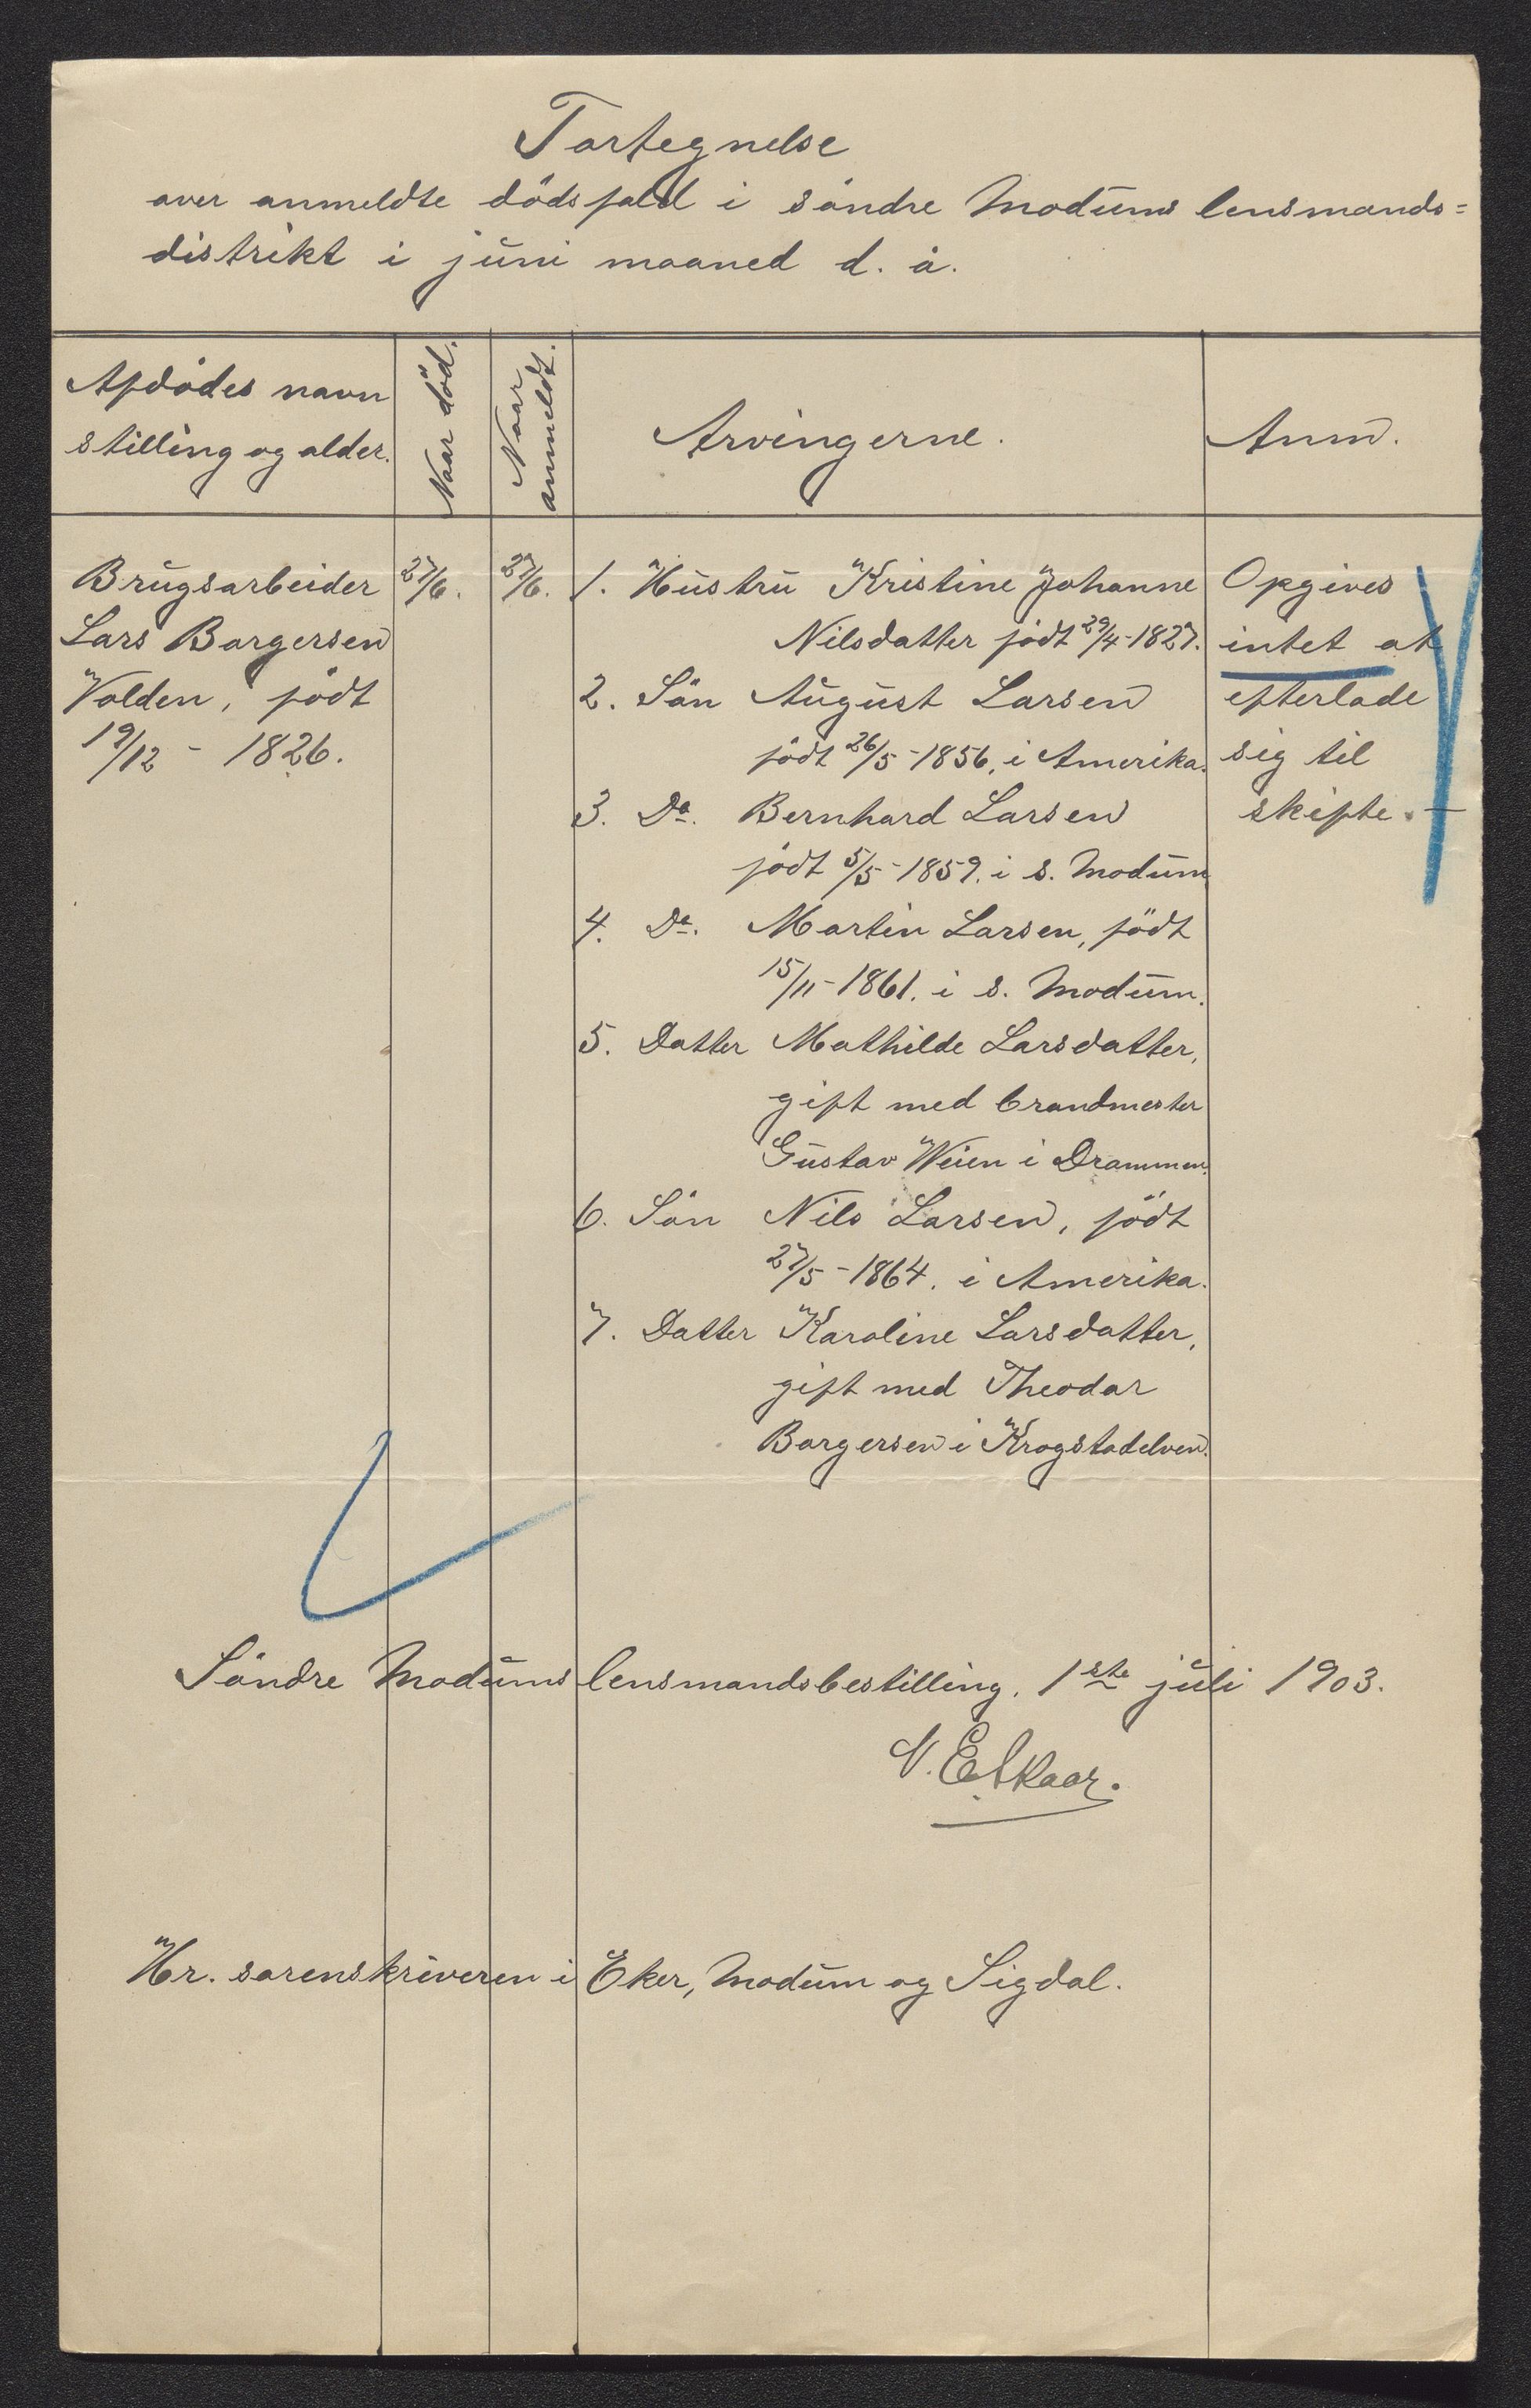 Fortegnelse
over anmeldte dödsfald i söndre Modums lensmands=
distrikt i juni maaned d. å.
Afdödes navn
stilling og alder.
Naar död.
Naar
anmeldt.
Arvingerne.
Anm.
Brugsarbeider
Lars Borgersen
Volden, födt
19/12 - 1826.
27/6.
27/6.
1. Hustru Kristine Johanne
Nilsdatter födt 29/4-1827.
2. Sön August Larsen
födt 26/5-1856, i Amerika.
3. Do. Bernhard Larsen
födt 5/5-1859. i s. Modum
4. Do. Martin Larsen, födt
15/11-1861. i s. Modum.
5. Datter Mathilde Larsdatter,
gift med brandmester
Gustav Weien i Drammen.
6. Sön Nils Larsen, födt
27/5-1864. i Amerika.
7. Datter Karoline Larsdatter,
gift med Theodor
Borgersen i Krogstadelven.
Opgives
intet at
efterlade
sig til
skifte.
Söndre Modums lensmandsbestilling, 1ste juli 1903.
N. E. Skaar.
Hr. sorenskriveren i Eker, Modum og Sigdal.